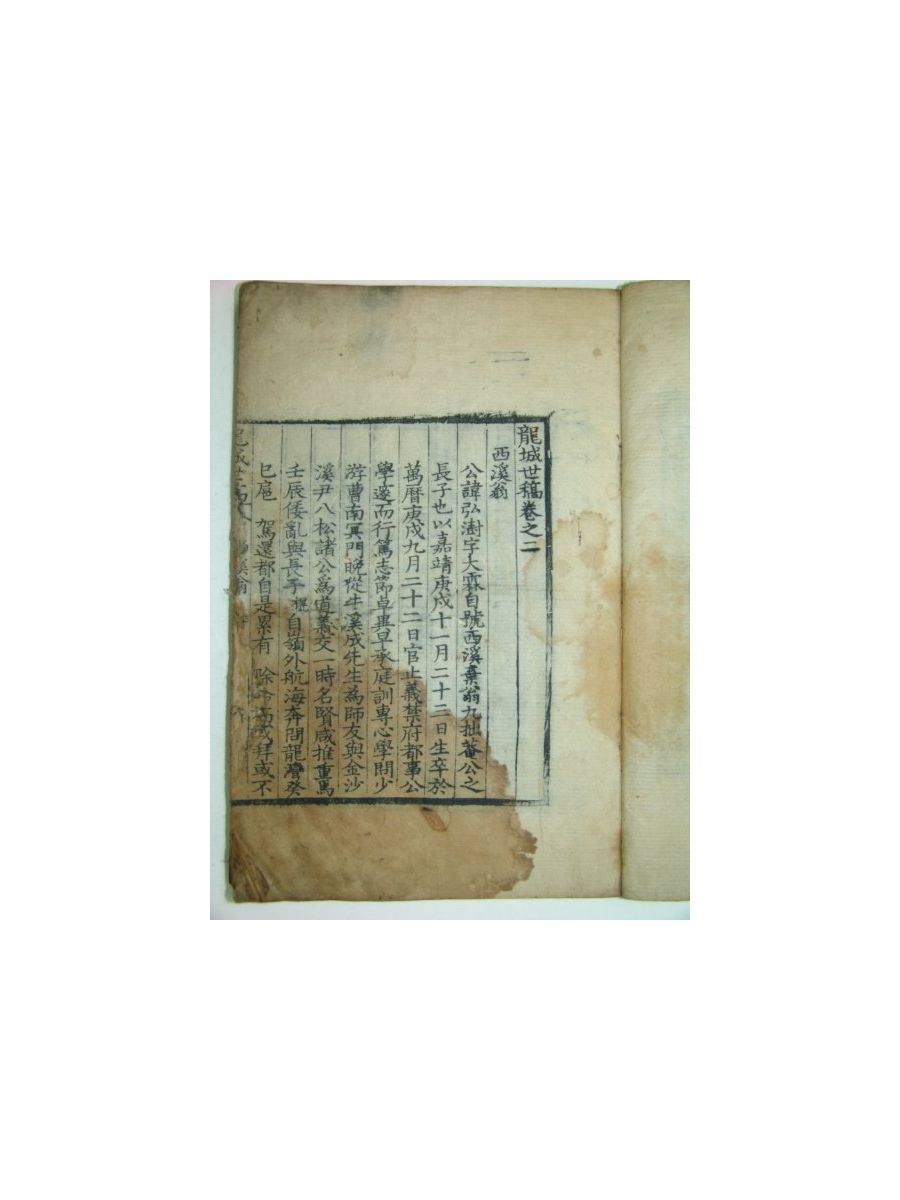 龍城世稿卷之二
西溪翁
公諱弘澍字大霖自號西溪棄翁九拙菴公之
長子也以嘉靖庚戌十一月二十三日生卒於
萬曆庚戌九月二十二日官止義禁府都事公
學邃而行篤志節卓異早承庭訓專心學問少
游曺南冥門晚從牛溪成先生為師友與金沙
溪尹八松諸公爲道義交一時名賢咸推重焉
壬辰倭亂與長子 自嶺外航海奔問龍灣癸
巳扈 駕還都自是累有 除命 或拜或不
龍城世稿 西溪翁